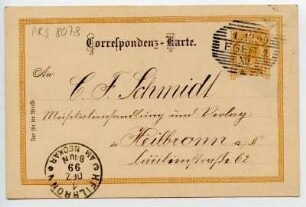 PKS 8078
Correspondenz-Karte.
An
C. F. Schmidt
Musikalienhandlung und Verlag
in Heilbronn a/N
Cäcilienstraße 62
Nur für die Adresse
EGER
HEILBRONN
AM NECKAR
DEZ
99